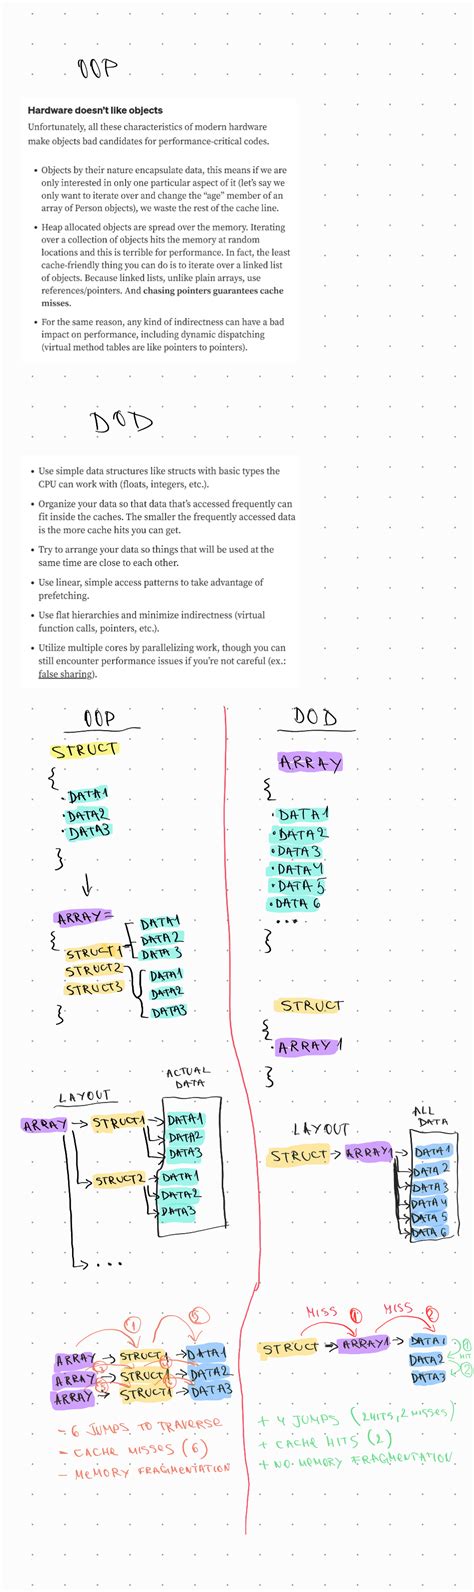 OOP
Hardware doesn't like objects
Unfortunately, all these characteristics of modern hardware
make objects bad candidates for performance-critical codes.
• Objects by their nature encapsulate data, this means if we are
only interested in only one particular aspect of it (let's say we
only want to iterate over and change the “age” member of an
array of Person objects), we waste the rest of the cache line.
• Heap allocated objects are spread over the memory. Iterating
over a collection of objects hits the memory at random
locations and this is terrible for performance. In fact, the least
cache-friendly thing you can do is to iterate over a linked list
of objects. Because linked lists, unlike plain arrays, use
references/pointers. And chasing pointers guarantees cache
misses.
• For the same reason, any kind of indirectness can have a bad
impact on performance, including dynamic dispatching
(virtual method tables are like pointers to pointers).
DOD
• Use simple data structures like structs with basic types the
CPU can work with (floats, integers, etc.).
• Organize your data so that data that's accessed frequently can
fit inside the caches. The smaller the frequently accessed data
is the more cache hits you can get.
• Try to arrange your data so things that will be used at the
same time are close to each other.
• Use linear, simple access patterns to take advantage of
prefetching.
• Use flat hierarchies and minimize indirectness (virtual
function calls, pointers, etc.).
• Utilize multiple cores by parallelizing work, though you can
still encounter performance issues if you're not careful (ex.:
false sharing).
OOP
STRUCT
{
• DATA1
• DATA2
• DATA3
}
ARRAY =
{
STRUCT1
STRUCT2
STRUCT3
}
DATA1
DATA2
DATA3
DATA1
DATA2
DATA3
LAYOUT
ACTUAL
DATA
ARRAY → STRUCT1 → DATA1
DATA2
DATA3
→ STRUCT2 → DATA1
DATA2
DATA3
→ ...
1 2
ARRAY → STRUCT1 → DATA1
ARRAY → STRUCT1 → DATA2
ARRAY → STRUCT1 → DATA3
- 6 JUMPS TO TRAVERSE
- CACHE MISSES (6)
- MEMORY FRAGMENTATION
DOD
ARRAY
{
• DATA1
• DATA2
• DATA3
• DATA4
• DATA5
• DATA6
...
}
STRUCT
{
• ARRAY1
}
LAYOUT
ALL
DATA
STRUCT → ARRAY1 → DATA1
DATA2
DATA3
DATA4
DATA5
DATA6
MISS 1 MISS 2
STRUCT → ARRAY1 → DATA1 1
HIT
DATA2 2
DATA3
+ 4 JUMPS (2 HITS, 2 MISSES)
+ CACHE HITS (2)
+ NO MEMORY FRAGMENTATION